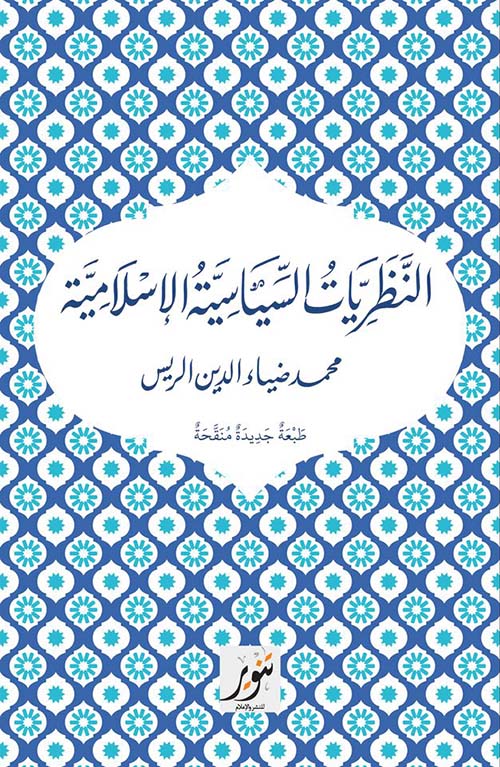 النَّظَرِيَّاتُ السِّيَاسِيَّةُ الإِسْلَامِيَّة
محمد ضياء الدين الريس
طَبْعَةٌ جَدِيدَةٌ مُنَقَّحَةٌ
تنوير
للنشر والإعلام